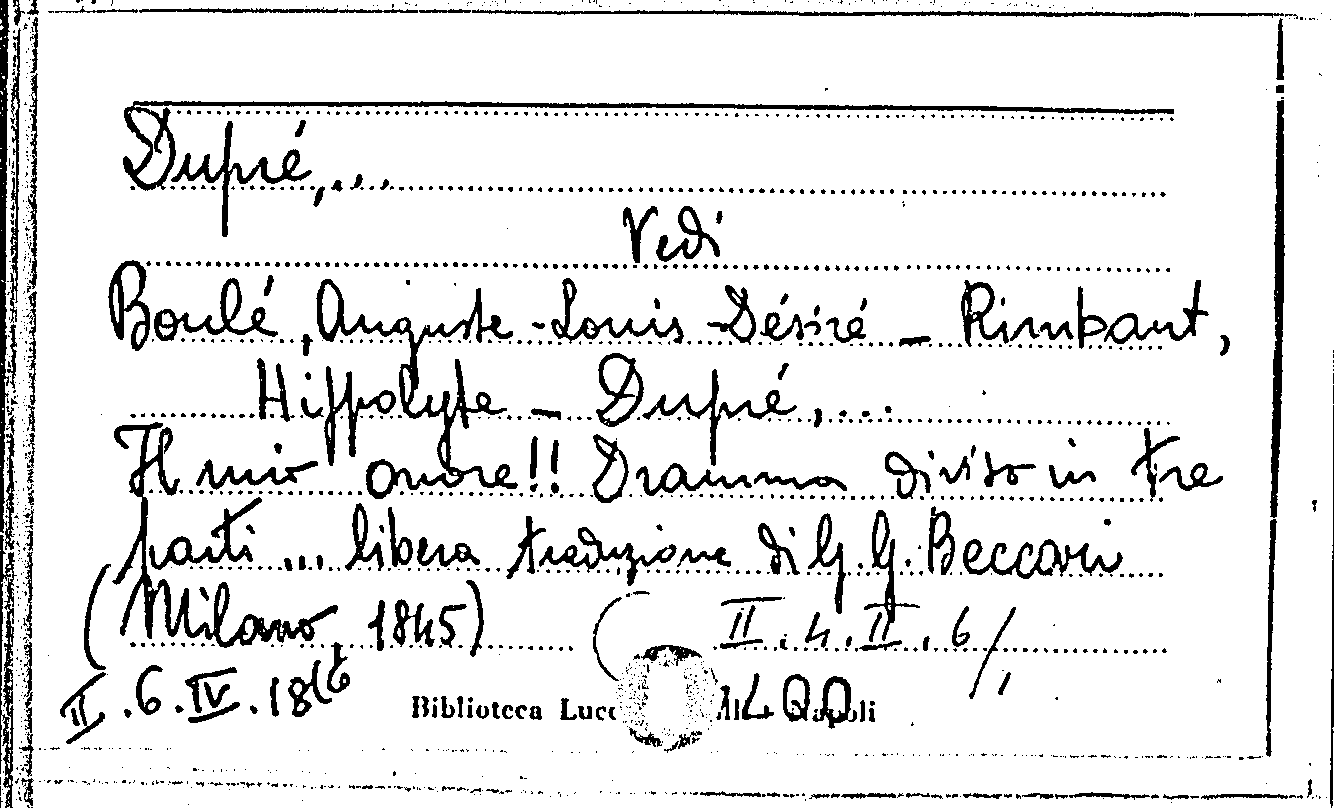 Dupré,...
Vedi
Boulé, Auguste-Louis-Désiré – Rimbaut,
Hippolyte – Dupré,...
Il mio onore!! Dramma diviso in tre
parti ... libera traduzione di G. G. Beccari
(Milano, 1845) II.4.II.6/
II.6.IV.18
Biblioteca Napoli